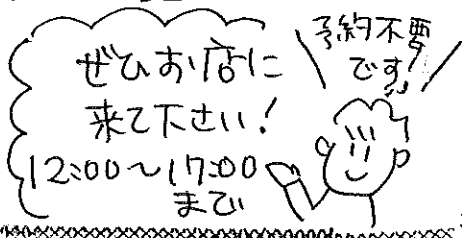 ぜひお店に
来て下さい!
12:00〜17:00
まで
予約不要
です!